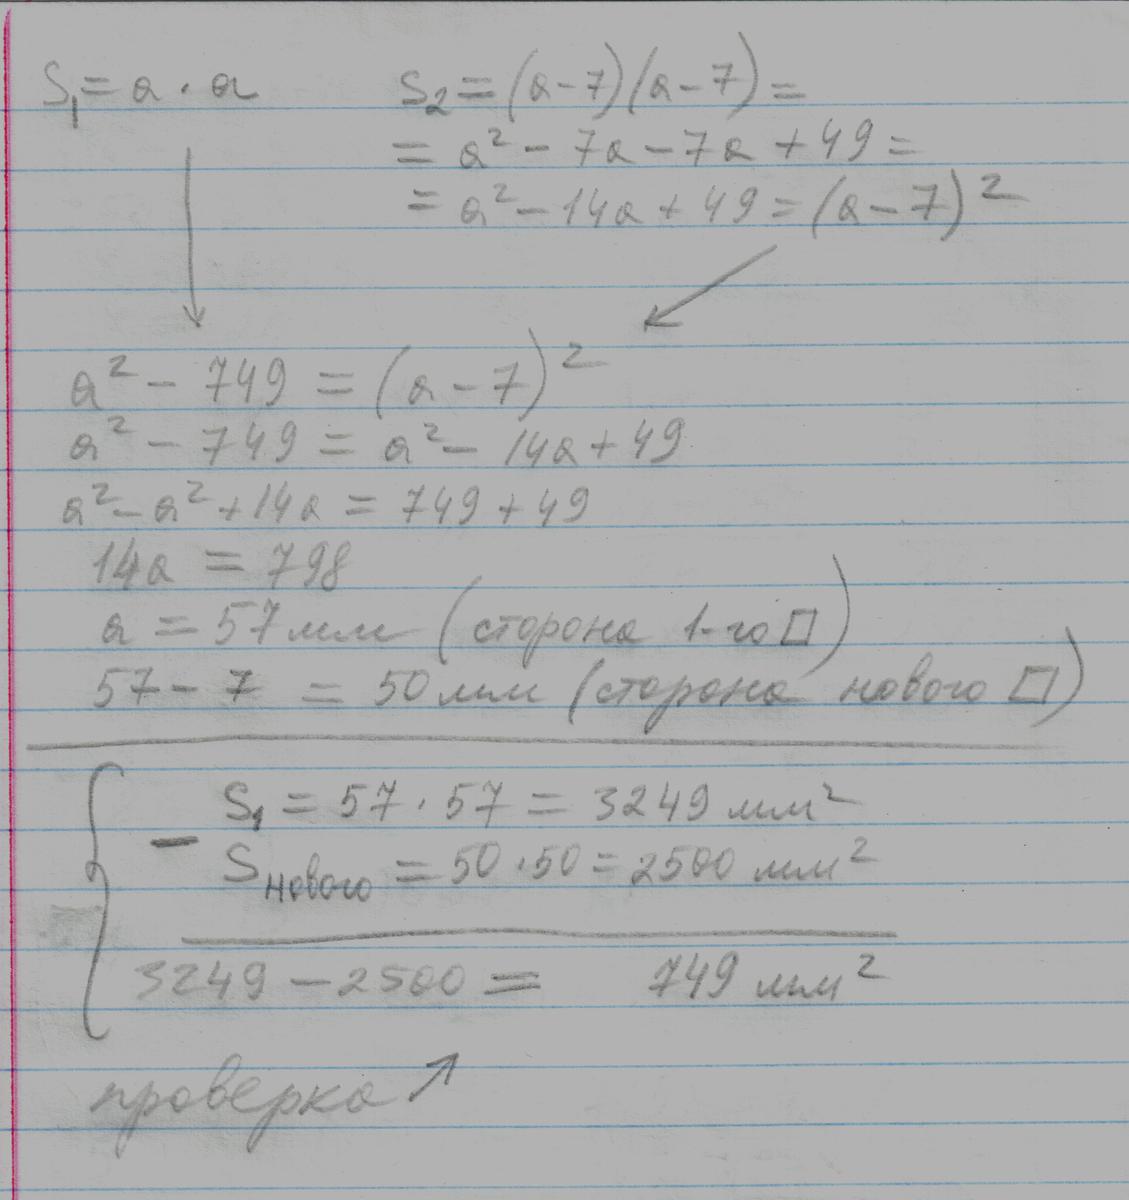 S₁ = a · a
S₂ = (a-7)(a-7) =
= a² - 7a - 7a + 49 =
= a² - 14a + 49 = (a-7)²
a² - 749 = (a-7)²
a² - 749 = a² - 14a + 49
a² - a² + 14a = 749 + 49
14a = 798
a = 57 мм (сторона 1-го □)
57 - 7 = 50 мм (сторона нового □)
S₁ = 57 · 57 = 3249 мм²
- Sнового = 50 · 50 = 2500 мм²
3249 - 2500 = 749 мм²
проверка ↗